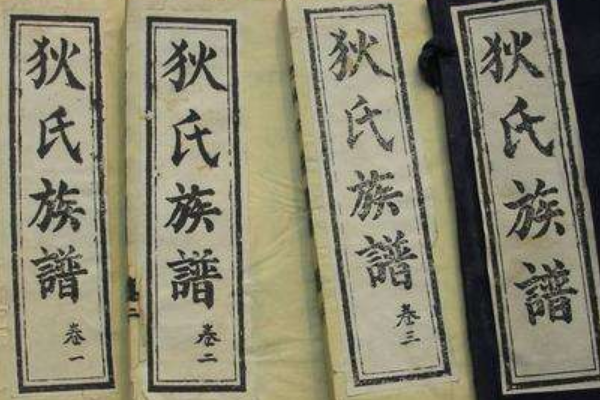 狄氏族譜 卷一
狄氏族譜 卷二
狄氏族譜 卷三
狄氏族譜